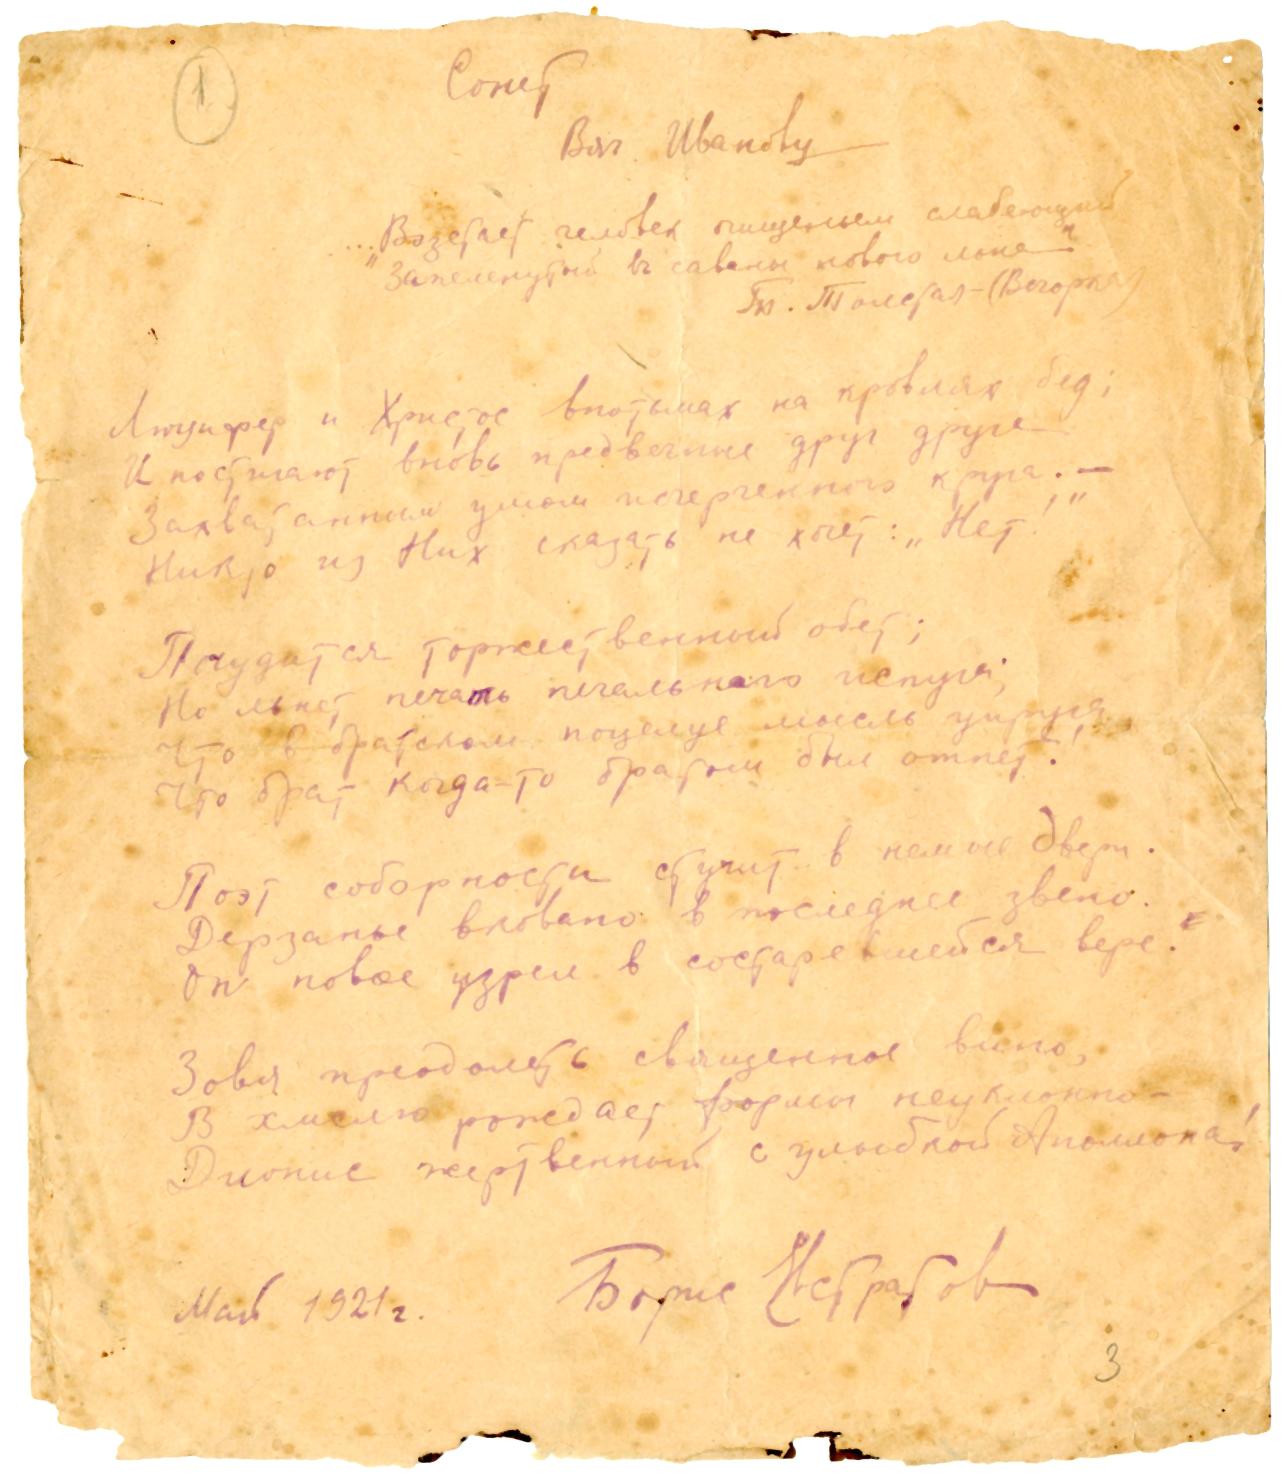 1
Сонет
Вяч. Иванову
... „Взлетает человек слабеющий
Запеленутый в саваны нового лона"
Толстая
Люцифер и Христос впотьмах на кровлях бед;
И постигают вновь предвечные друг друга
Захватанным умом исчерченного круга. —
Никто из Них сказать не хочет: „Нет!"
Почудится торжественный обет;
Но льнет печать печального испуга;
Что в братском поцелуе мысль упруга,
Что брат когда-то братом был отпет!
Поэт соборности стучит в немые двери.
Дерзанье вковано в последнее звено.
Он новое узрел в состаревшейся вере.
Зовя преодолеть священное вино,
В хмелю рождает формы неуклонно —
Дионис жертвенный с улыбкой Аполлона!
Май 1921 г.
Борис
3